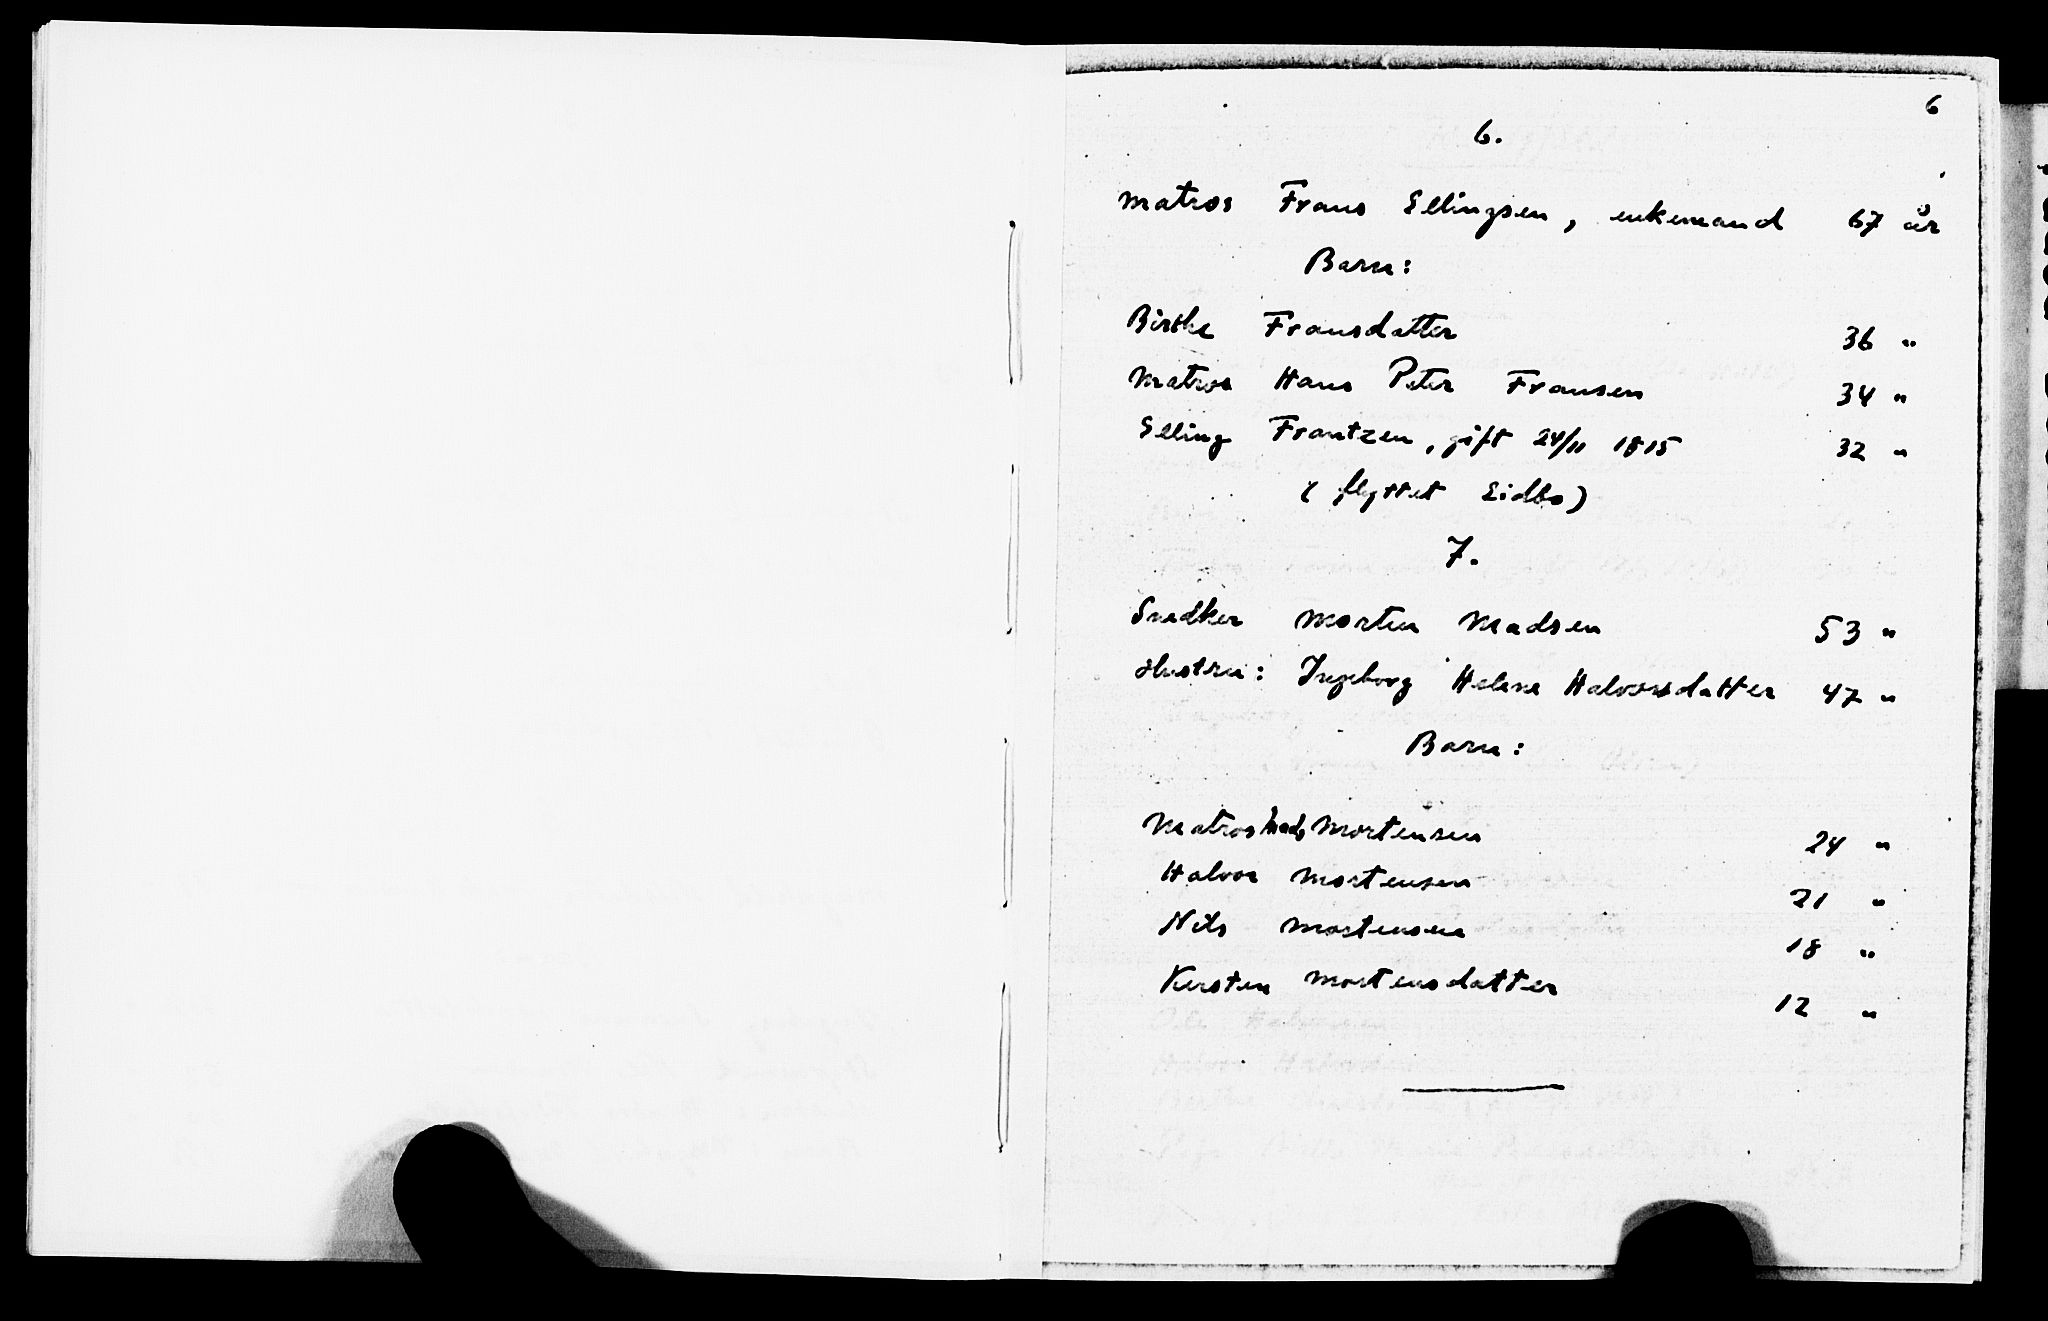 6
6.
Matros Frans Ellingsen, enkemand 67 år
Barn:
Birthe Fransdatter 36 "
Matros Hans Peter Fransen 34 "
Elling Frantzen, gift 24/11 1815 32 "
(flyttet Eidbo)
7.
Snedker Morten Madsen 53 "
Hustru: Ingeborg Helene Halvorsdatter 47 "
Barn:
Matros Mads Mortensen 24 "
Halvor Mortensen 21 "
Nils Mortensen 18 "
Kersten Mortensdatter 12 "